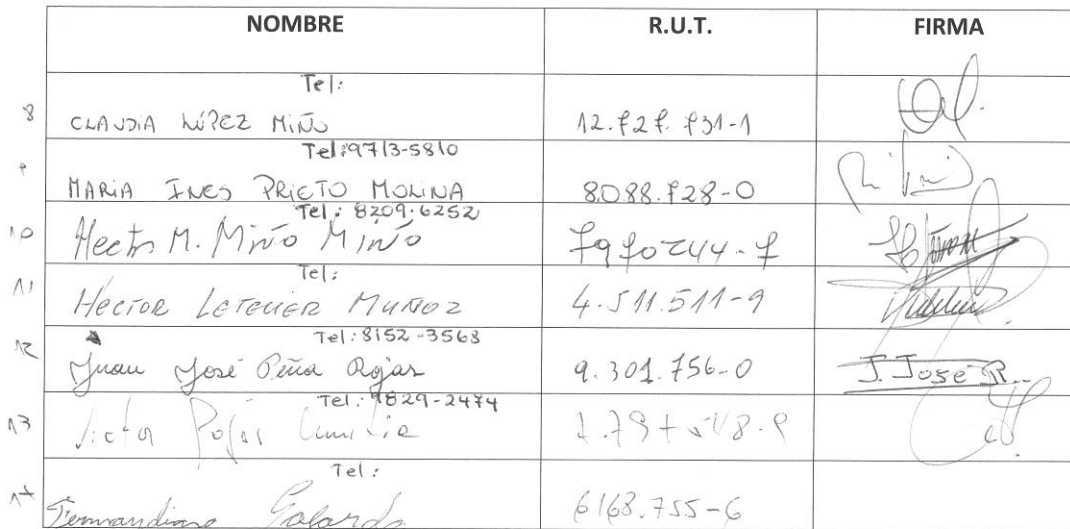 NOMBRE R.U.T. FIRMA
Tel:
8 CLAUDIA LÓPEZ MIÑO 12.727.731-1
Tel:9713-5810
9 MARIA INES PRIETO MOLINA 8.088.728-0
Tel: 8209-6252
10 Hector M. Miño Miño 7970244-7
Tel:
11 HECTOR LETELIER MUÑOZ 4.511.511-9
Tel: 8152-3563
12 Juan José Peña Rojas 9.301.756-0 J. Jose R.
Tel: 9829-2474
13 Victor Rojas
Tel:
14 Galardo 6168.755-6